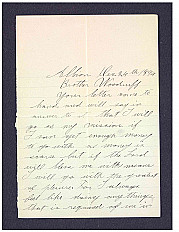 Albion Dec 26 th 1894
Brother Woodruff
Your letter came to
hand and will say in
answer to it that I will
go on my mission if
I can get enough money
to go with, as money is
scarce but if the Lord
will bless me with means
I will go with the greatest
of pleasure for I always
felt like doing any thing
that is required of me in